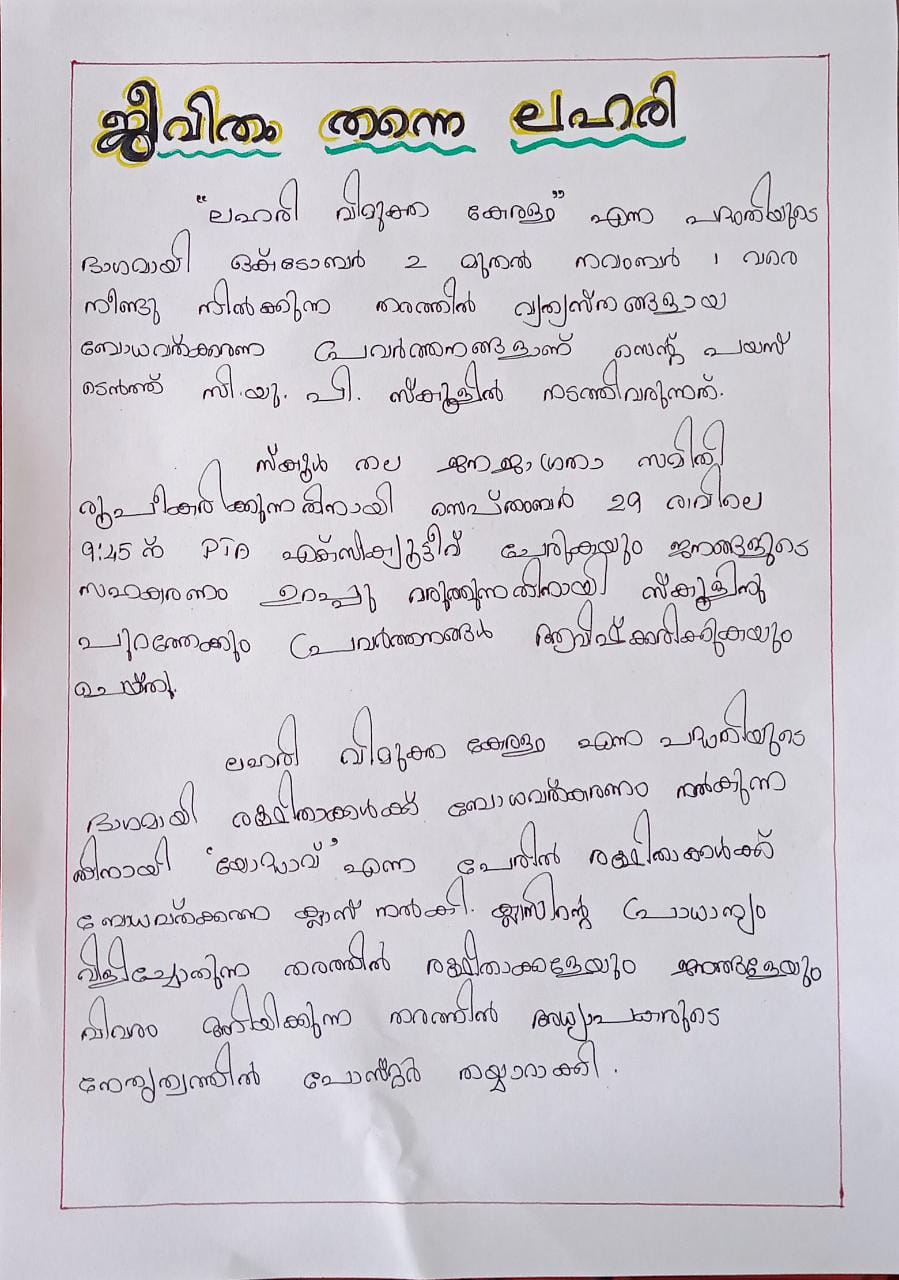 ജീവിതം തന്നെ ലഹരി
"ലഹരി വിമുക്ത കേരളം" എന്ന പദ്ധതിയുടെ
ഭാഗമായി ഒക്ടോബർ 2 മുതൽ നവംബർ 1 വരെ
നീണ്ടു നിൽക്കുന്ന തരത്തിൽ വ്യത്യസ്തങ്ങളായ
ബോധവൽക്കരണ പ്രവർത്തനങ്ങളാണ് സെന്റ് പയസ്
ടെൻത്ത് സി.യു. പി. സ്കൂളിൽ നടത്തിവരുന്നത്.
സ്കൂൾ തല ജനജാഗ്രതാ സമിതി
രൂപീകരിക്കുന്നതിനായി സെപ്തംബർ 29 രാവിലെ
9:45 ന് PTA എക്സിക്യൂട്ടീവ് ചേരുകയും ജനങ്ങളുടെ
സഹകരണം ഉറപ്പു വരുത്തുന്നതിനായി സ്കൂളിനു
പുറത്തേക്കും പ്രവർത്തനങ്ങൾ ആവിഷ്കരിക്കുകയും
ചെയ്തു.
ലഹരി വിമുക്ത കേരളം എന്ന പദ്ധതിയുടെ
ഭാഗമായി രക്ഷിതാക്കൾക്ക് ബോധവൽകരണം നൽകുന്ന
തിനായി 'യോദ്ധാവ്' എന്ന പേരിൽ രക്ഷിതാക്കൾക്ക്
ബോധവൽക്കരണ ക്ലാസ് നൽകി. ക്ലാസിന്റെ പ്രാധാന്യം
വിളിച്ചോതുന്ന തരത്തിൽ രക്ഷിതാക്കളേയും ജനങ്ങളേയും
വിവരം അറിയിക്കുന്ന തരത്തിൽ അധ്യാപകരുടെ
നേതൃത്വത്തിൽ പോസ്റ്റർ തയ്യാറാക്കി.